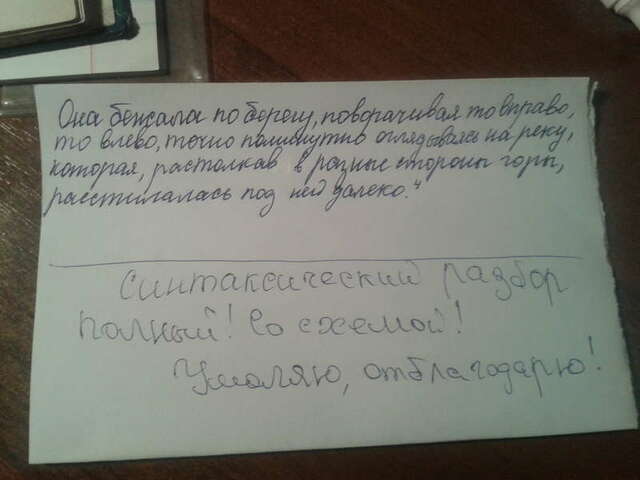 Она бежала по берегу, поворачивая то вправо,
то влево, точно поминутно оглядываясь на реку,
которая, растолкав в разные стороны горы,
расстилалась под ней далеко."
синтаксический разбор
полный! Со схемой!
Умоляю, отблагодарю!